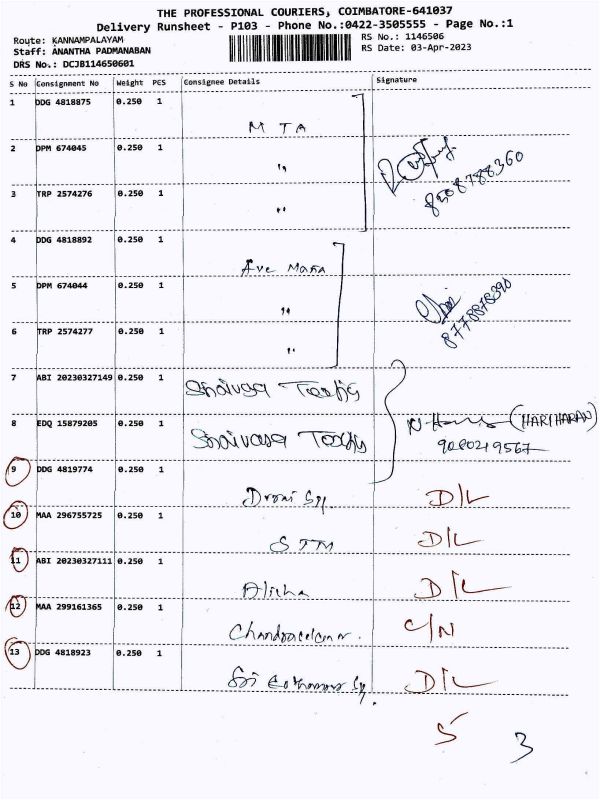 THE PROFESSIONAL COURIERS, COIMBATORE-641037
Delivery Runsheet - P103 - Phone No.:0422-3505555 - Page No.:1
Route: KANNAMPALAYAM RS No.: 1146506
Staff: ANANTHA PADMANABAN RS Date: 03-Apr-2023
DRS No.: DCJB114650601
S No Consignment No Weight PCS Consignee Details Signature
1 DDG 4818875 0.250 1
MTA
2 DPM 674045 0.250 1
"
8508788360
3 TRP 2574276 0.250 1
"
4 DDG 4818892 0.250 1
Ave Maria
5 DPM 674044 0.250 1
"
8778878390
6 TRP 2574277 0.250 1
"
7 ABI 20230327149 0.250 1
8 EDQ 15879205 0.250 1
(HARIHARAN)
9 DDG 4819774 0.250 1
D/L
10 MAA 296755725 0.250 1
STM D/L
11 ABI 20230327111 0.250 1
Alisha D/L
12 MAA 299161365 0.250 1
C/N
13 DDG 4818923 0.250 1
Sri D/L
5 3